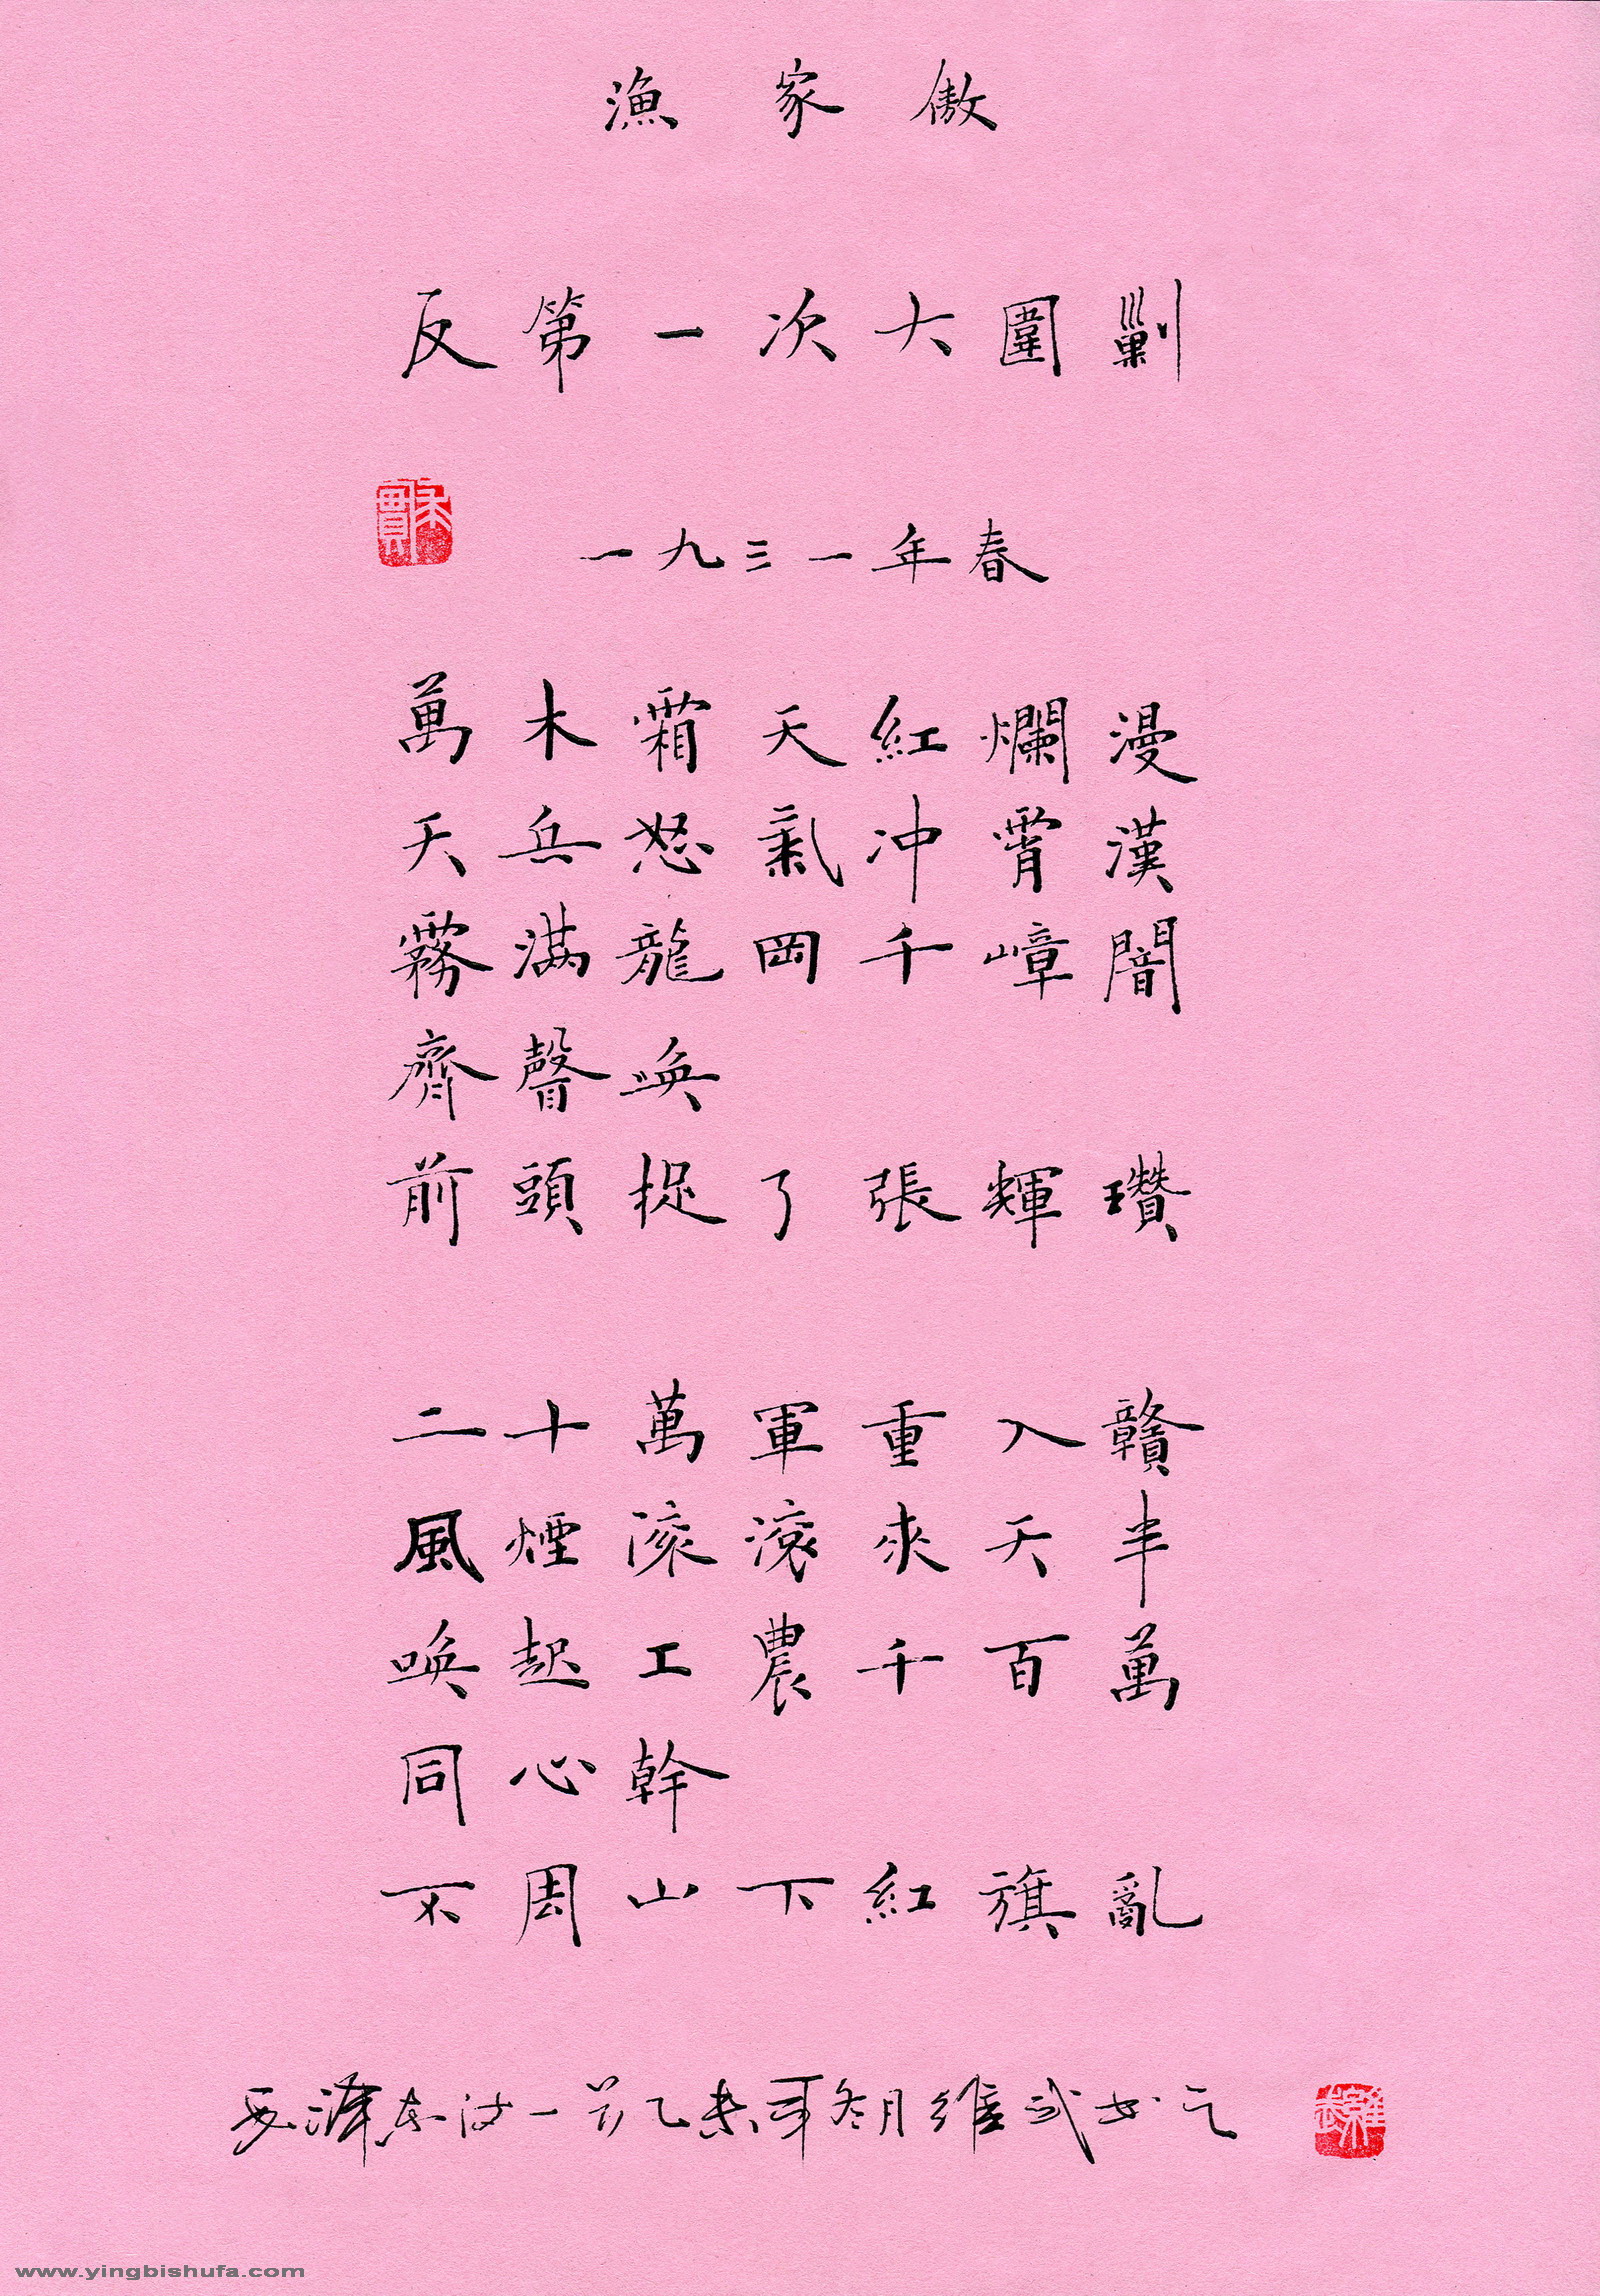 漁家傲
反第一次大圍剿
一九三一年春
萬木霜天紅爛漫
天兵怒氣冲霄漢
霧滿龍岡千嶂闇
齊聲唤
前頭捉了張輝瓚
二十萬軍重入贛
風煙滚滚來天半
唤起工農千百萬
同心幹
不周山下紅旗亂
毛澤東词一首乙未年冬月維武书之
www.yingbishufa.com